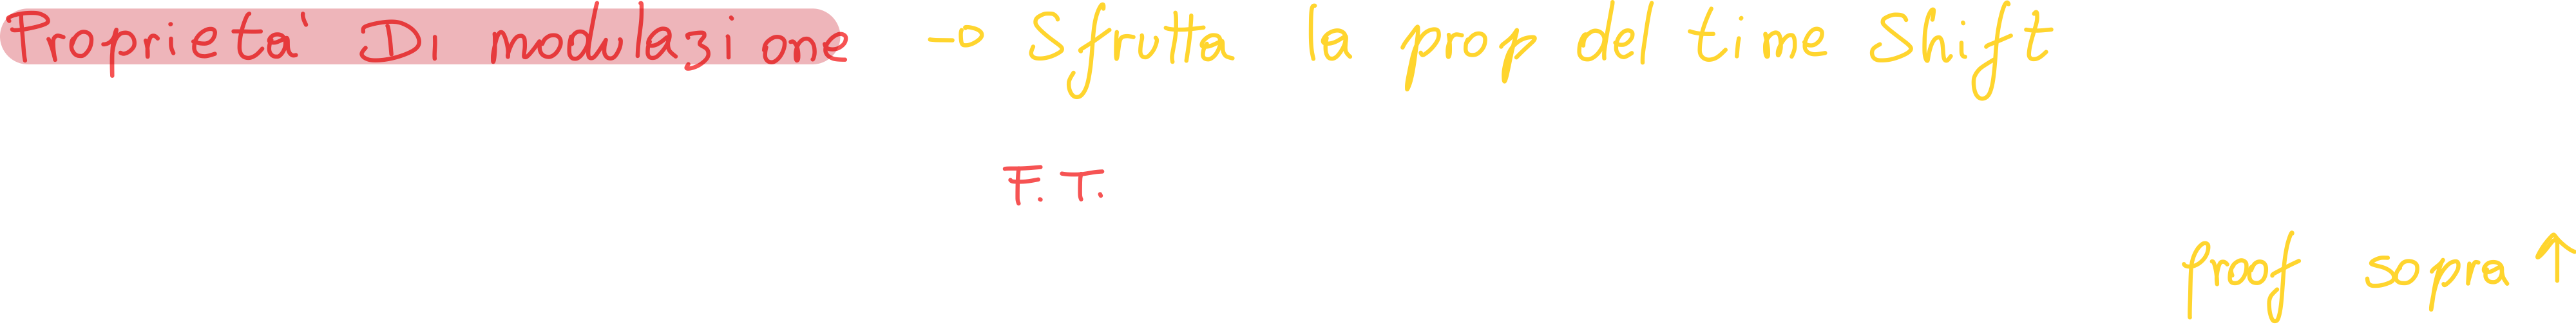 Proprieta' Di modulazione → Sfrutta la prop del time Shift
F.T.
proof sopra ↑